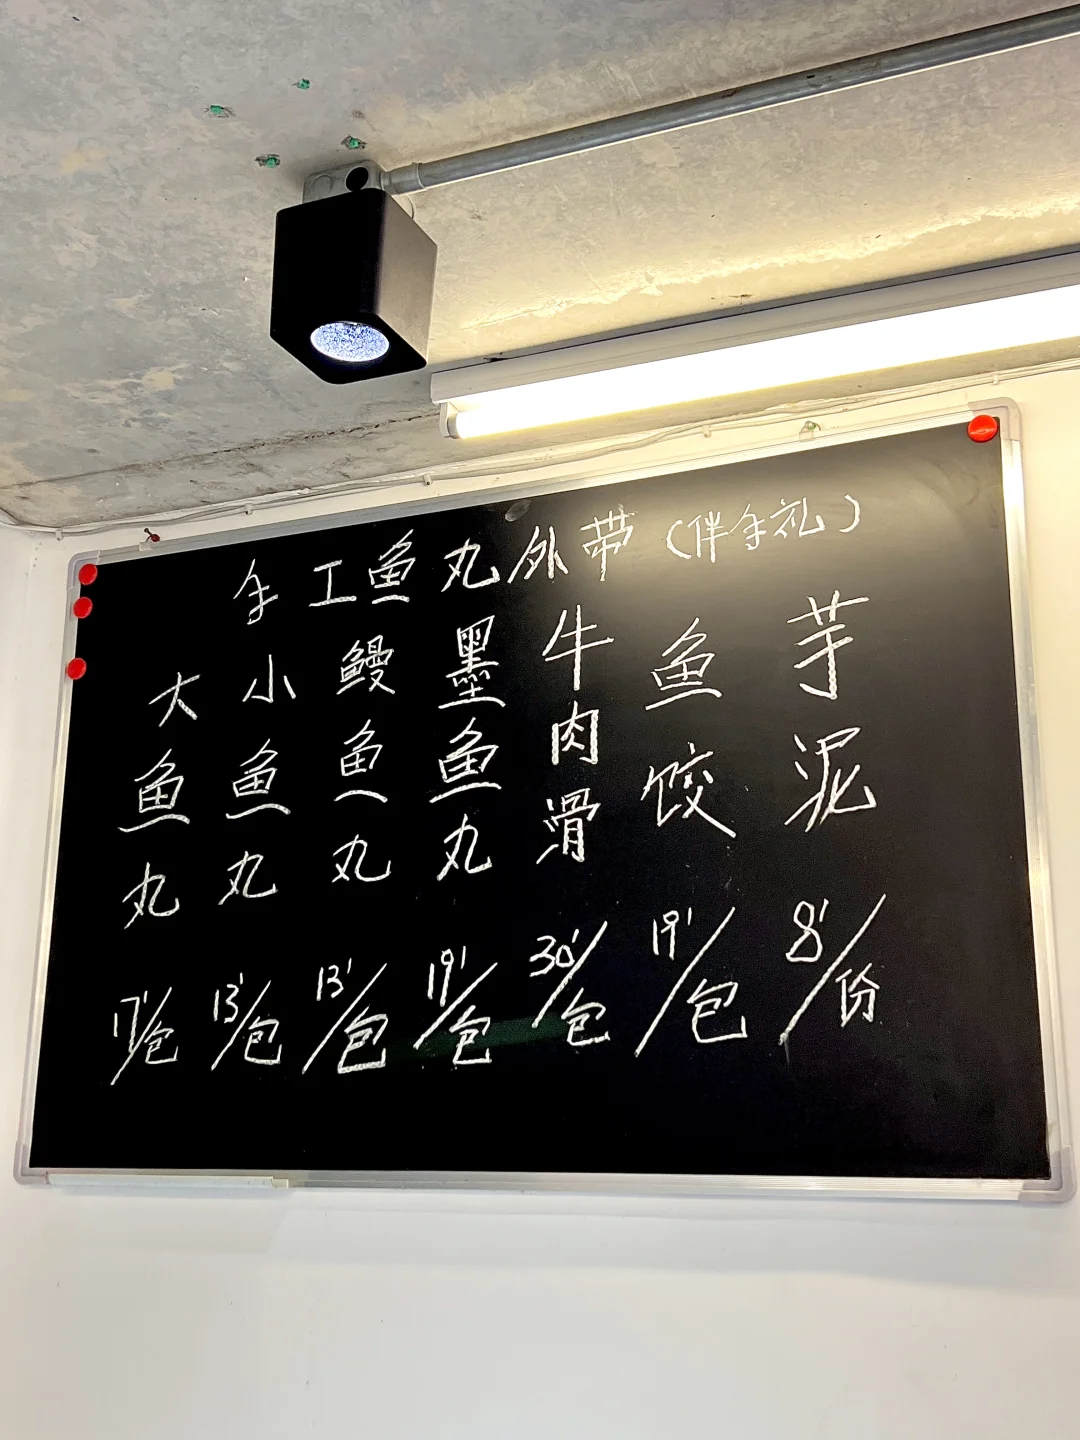 手工鱼丸外带(伴手礼)
大鱼丸 17'/包
小鱼丸 13'/包
鳗鱼丸 13'/包
墨鱼丸 19'/包
牛肉滑 30'/包
鱼饺 19'/包
芋泥 8'/份